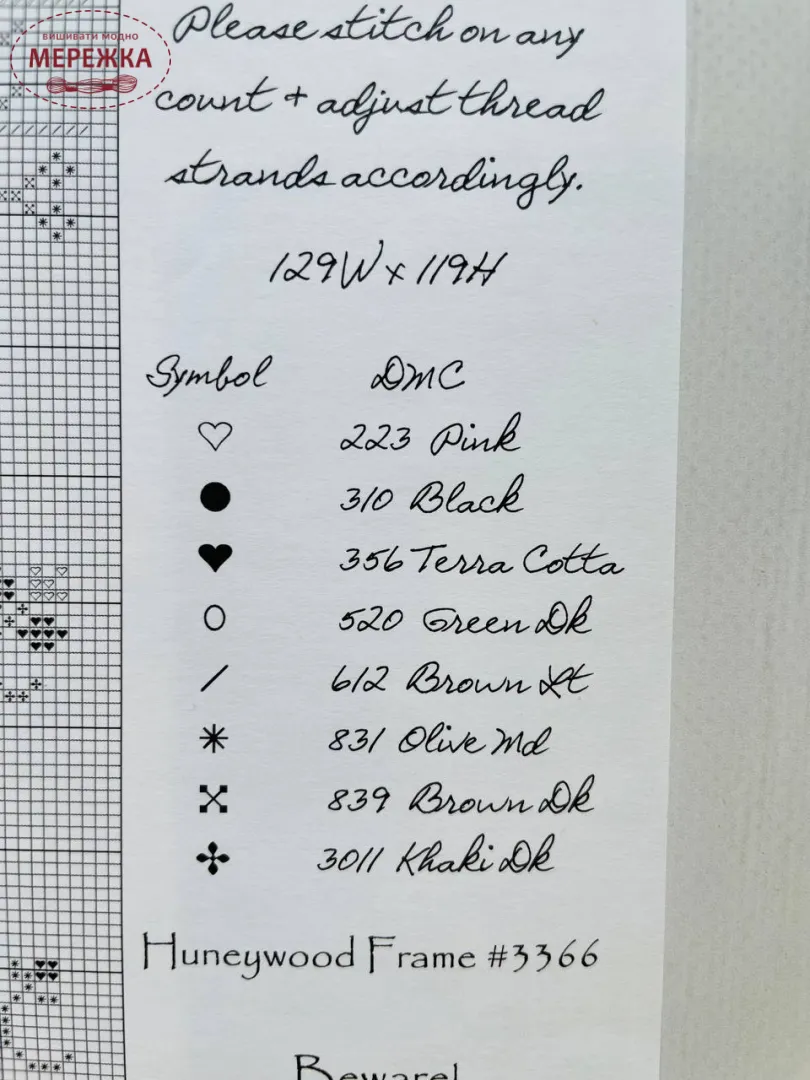 вишивати модно
МЕРЕЖКА
Please stitch on any
count + adjust thread
strands accordingly.
129W x 119H
Symbol DMC
223 Pink
310 Black
356 Terra Cotta
520 Green Dk
612 Brown Lt
831 Olive Md
839 Brown Dk
3011 Khaki Dk
Huneywood Frame #3366
Beware!